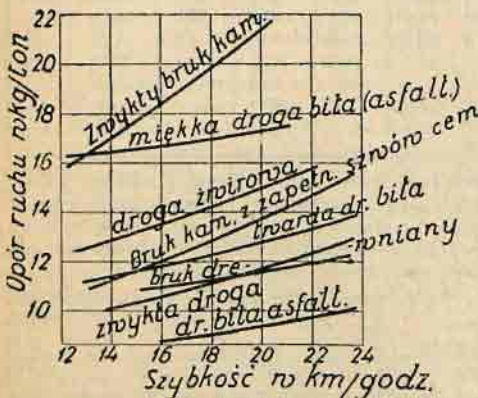 Opór ruchu w kg/ton
22
20
18
16
14
12
10
Zwykły bruk kam.
miękka droga bita (asfalt.)
droga żwirowa
Bruk kam. z zapełn. szwów cem
twarda dr. bita
bruk dre-wniany
zwykła droga
dr. bita asfalt.
12 14 16 18 20 22 24
Szybkość w km/godz.